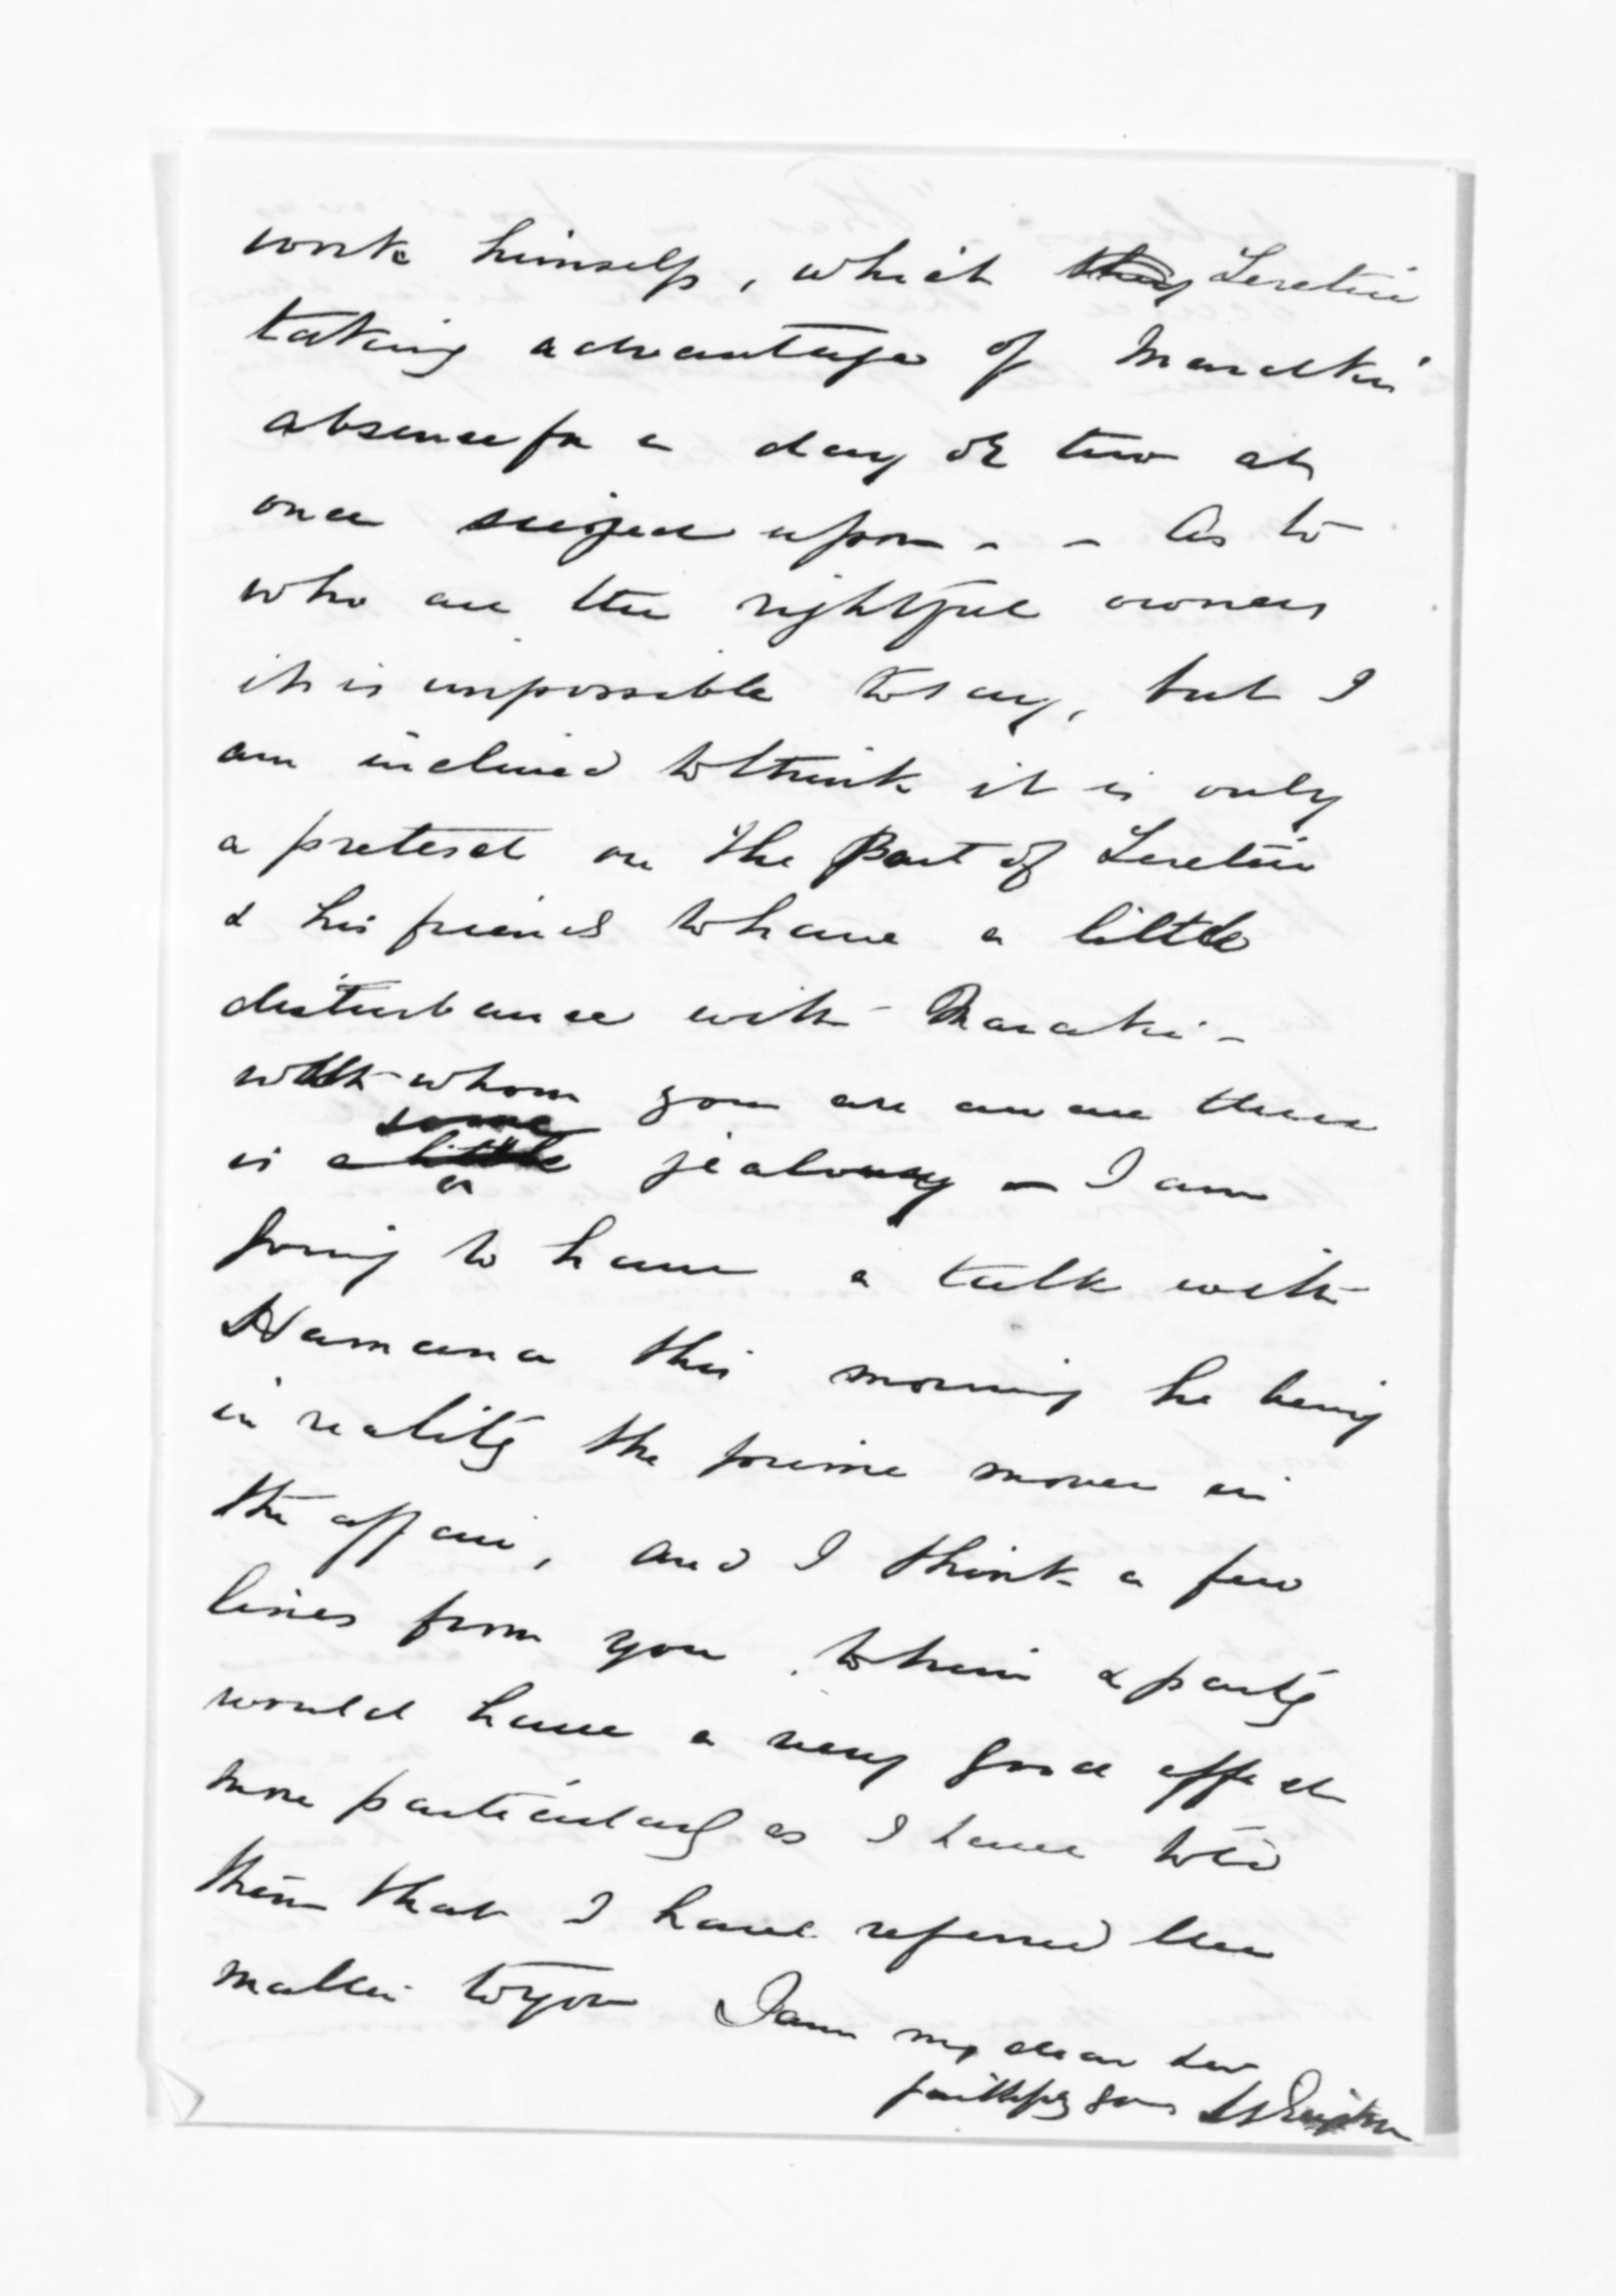 work himself, which they Teretiu
taking advantage of Maraki's
absence for a day or two at
once seized upon - - As to
who are the rightful owners
it is impossible to say, but I
am inclined to think it is only
a pretext on the Part of Teretiu
& his friends to have a little
disturbance with Maraki -
with whom you are aware there
some
is a little jealousy - I am
going to have a talk with
Hamana this morning he being
in reality the prime mover in
the affair, and I think a few
lines from you to him & party
would have a very good effect
more particularly as I have told
them that I have referred the
matter to you I am my dear
faithfully yours